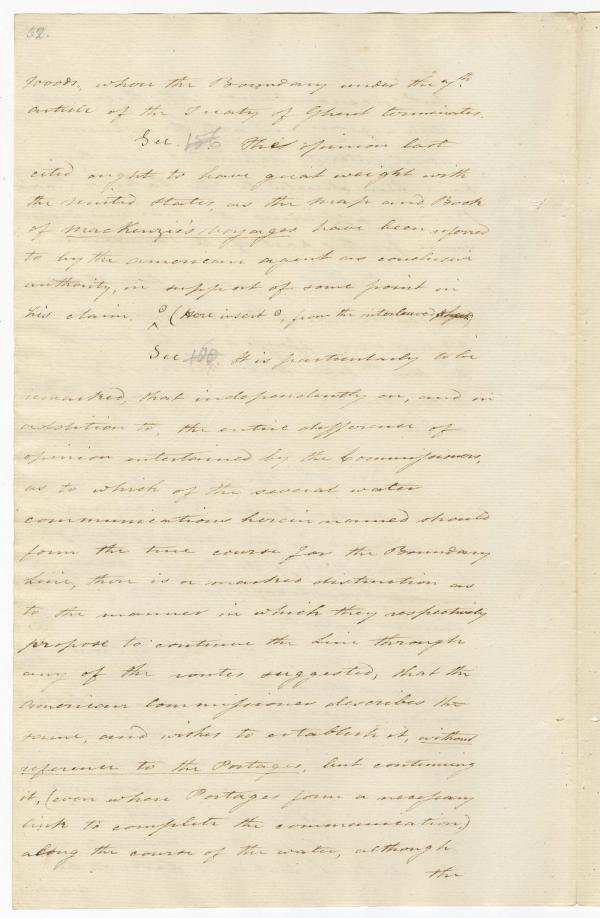 32.
Woods, where the Boundary under the 7th
article of the Treaty of Ghent terminates.
Sec. This opinion last
cited ought to have great weight with
the United States, as the map and Book
of MacKenzie's Voyages have been referred
to by the American agent as conclusive
authority, in support of some point in
his claim. (Here insert o, from the interleaved sheet)
Sec 100. It is particularly to be
remarked, that independently on, and in
addition to, the entire difference of
opinion entertained by the Commissioners,
as to which of the several water
communications herein named should
form the true course for the Boundary
Line, there is a marked distinction as
to the manner in which they respectively
propose to continue the Line through
any of the routes suggested, that the
American Commissioner describes the
same, and wishes to establish it, without
reference to the Portages, but continuing
it, (even where Portages form a necessary
link to complete the communication)
along the course of the water, although
the